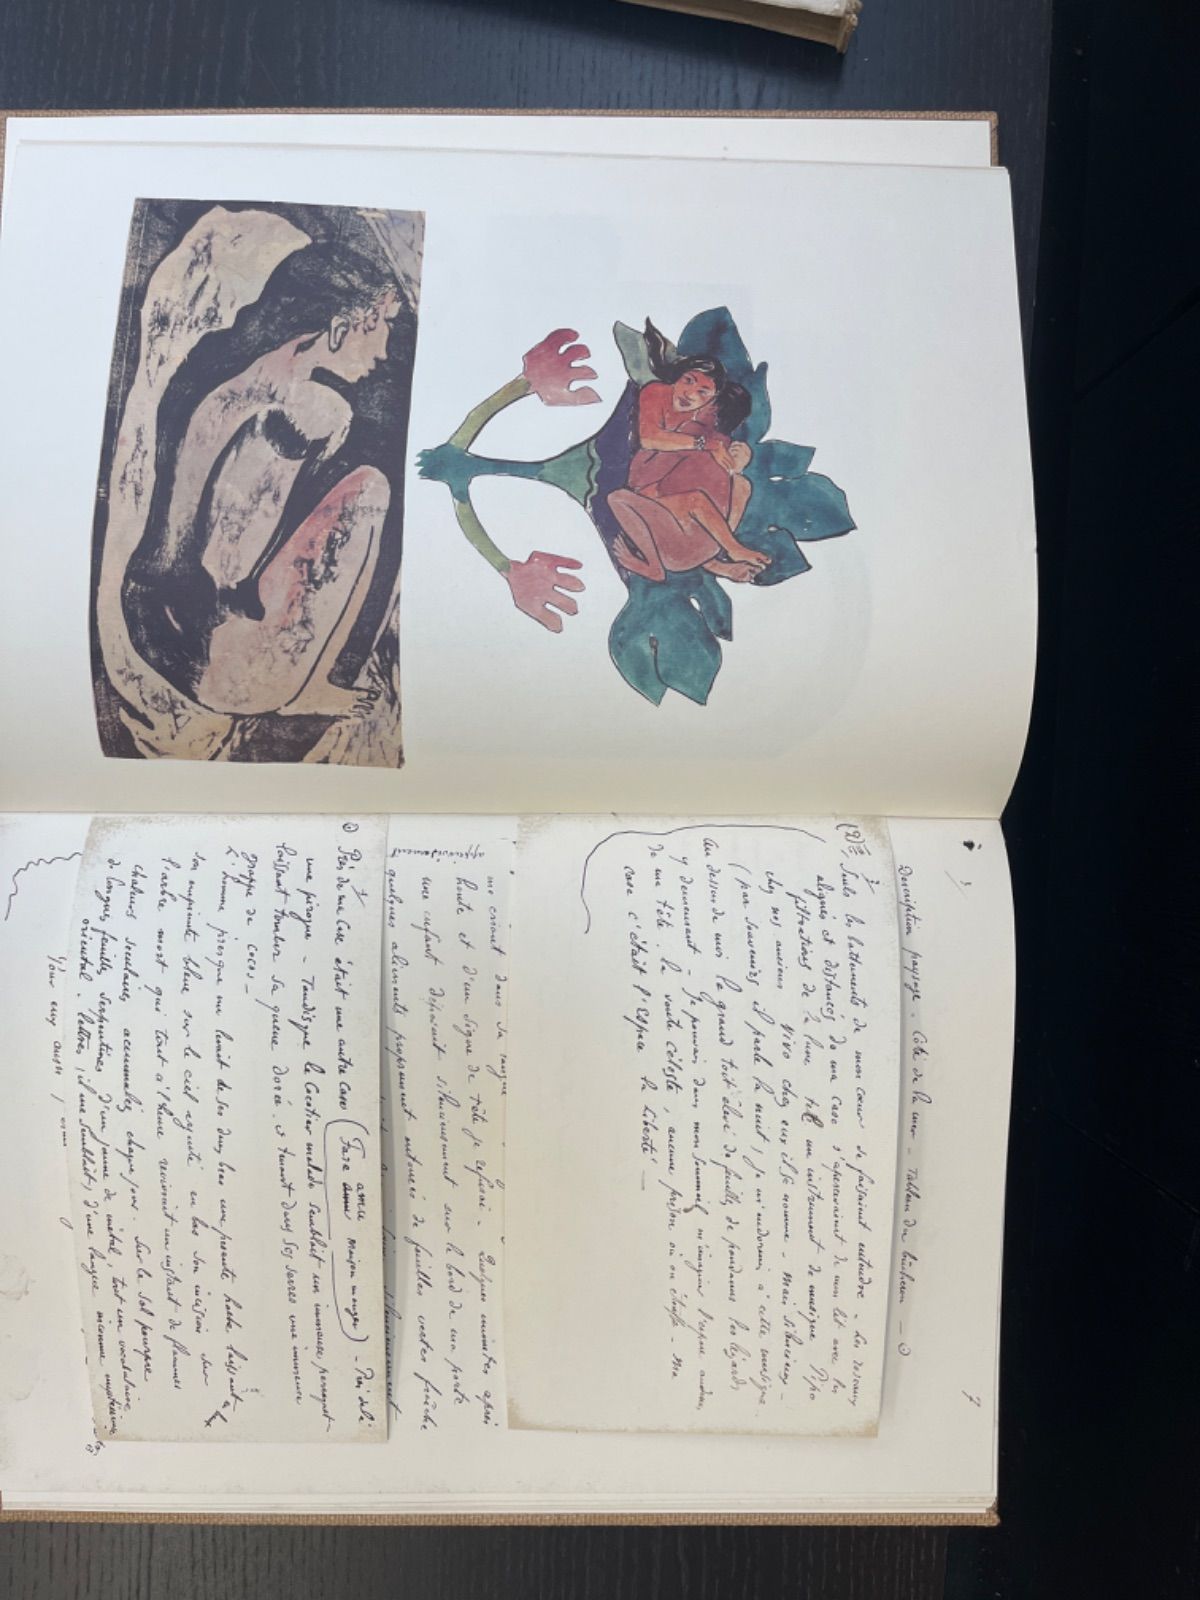 Description paysage - Côté de la mer - Tableau du bûcheron -
7
(2) Seuls les battements de mon cœur se faisaient entendre - Les roseaux
alignés et distancés de ma case s'apercevaient de mon lit avec les
filtrations de la lune tel un instrument de musique Pipo
chez nos anciens Vivo chez eux il se nomme - Mais silencieux -
(par souvenirs il parle la nuit) je m'endormis à cette musique.
Au dessus de moi le grand toit élevé de feuilles de pandanus les lézards
y demeurant - Je pouvais dans mon sommeil m'imaginer l'espace audessus
de ma tête, la voute céleste, aucune prison où on étouffe - Ma
case c'était l'Espace la Liberté -
me criait dans sa langue
honte et d'un signe de tête je refusai - Quelques minutes après
une enfant déposait silencieusement sur le bord de ma porte
quelques aliments proprement entourés de feuilles vertes fraîche
Près de ma Case était une autre case (Fare amu Maison manger) - Près de là
une pirogue - Tandisque le Cocotier malade semblait un immense perroquet
laissant tomber sa queue dorée, et tenant dans ses serres une immense
grappe de cocos -
L'homme presque nu levait de ses deux bras une pesante hache laissant à
son empreinte bleue sur le ciel argenté en bas son incision sur
l'arbre mort qui tout à l'heure revivrait un instant de flammes
chaleurs séculaires accumulées chaque jour. Sur le sol pourpre
de longues feuilles serpentines d'un jaune de métal, tout un vocabulaire
oriental - lettres, il me semblait, d'une langue inconnue mystérieuse
Pour eux aussi,